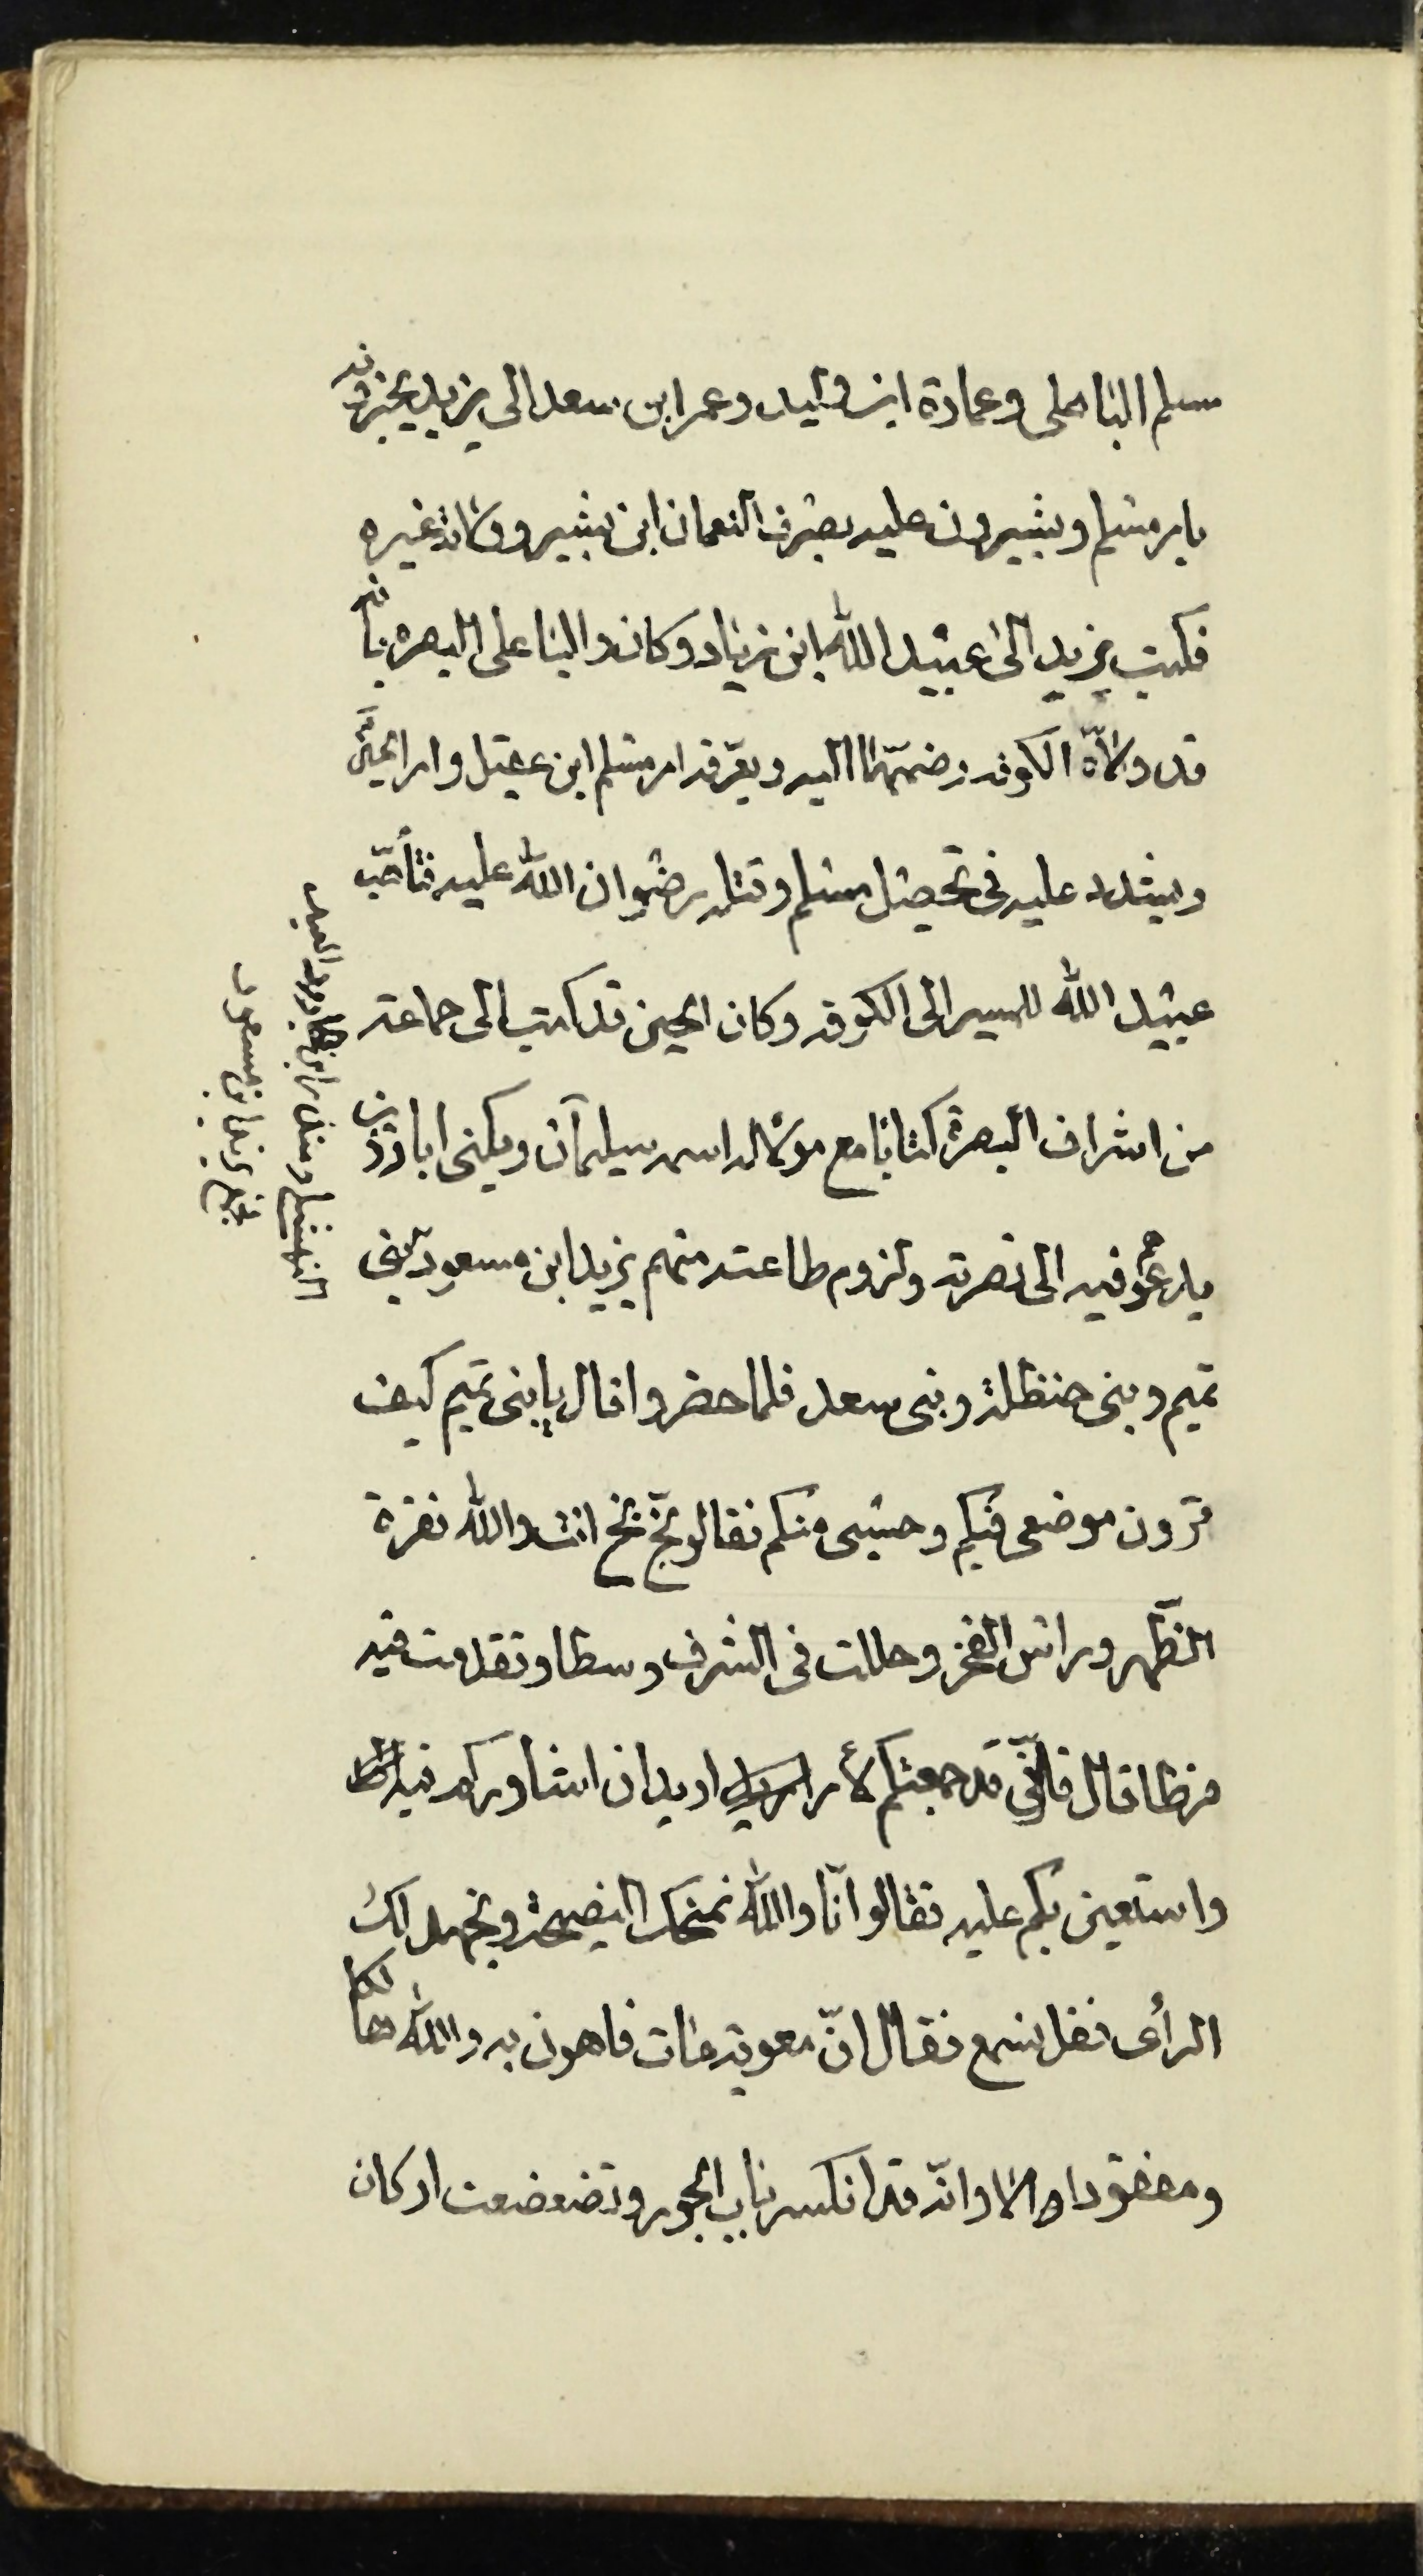 مسلم الباهلى وعمارة ابن وليد وعمر ابن سعد الى يزيد يخبرونه
بامر مسلم ويشيرون عليه بصرف النعمان ابن بشير وولاية غيره
فكتب يزيد الى عبيد الله ابن زياد وكان واليا على البصره بانه
قد ولاّه الكوفه وضمّها اليه ويعرّفه امر مسلم ابن عقيل وامر الحسين
ويشدد عليه فى تحصيل مسلم وقتله رضوان الله عليه فتأهّب
عبيد الله للمسير الى الكوفه وكان الحسين قد كتب الى جماعة
من اشراف البصرة كتابا مع مولاً له اسمه سليمان ويكنى ابا رزين
يدعوهم فيه الى نصرته ولزوم طاعته منهم يزيد ابن مسعود بنى
تميم وبنى حنظلة وبنى سعد فلما حضروا قال يابنى تميم كيف
ترون موضعى فيكم وحسبى منكم فقالو بخّ بخّ انت والله فقرة
الظّهر وراس الفخر وحللت فى الشرف وسطا وتقدمت فيه
فرطا قال فانّى قد جمعتكم لأمر اريد ان اشاوركم فيه
واستعين بكم عليه فقالوا انّا والله نمنحك النصيحة ونجهد لك
الرأى فقل نسمع فقال انّ معوية مات فاهون به والله هالكا
ومفقودا الا وانّه قد انكسر باب الجور وتضعضعت اركان
النهشلى ومنذر ابن الجارود العبدى
فجمع يزيد ابن مسعود